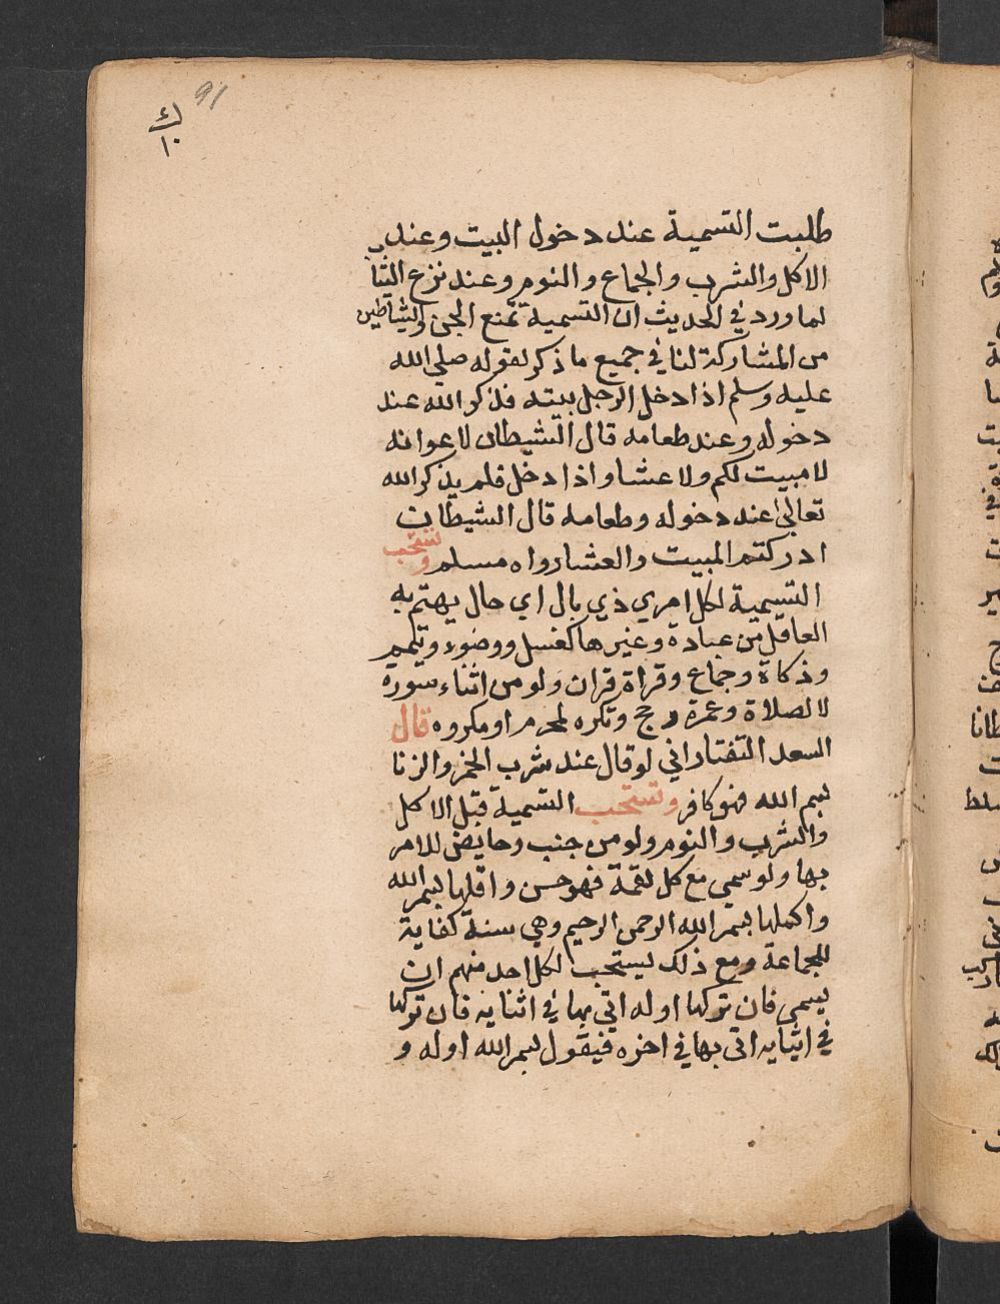 91
ك
١٠
طلبت التسمية عند دخول البيت وعند
الاكل والشرب والجماع والنوم وعند نزع الثياب
لما ورد في الحديث ان التسمية تمنع الجن والشياطين
من المشاركة لنا في جميع ما ذكر لقوله صلى الله
عليه وسلم اذا دخل الرجل بيته فذكر الله عند
دخوله وعند طعامه قال الشيطان لاعوانه
لا مبيت لكم ولا عشا واذا دخل فلم يذكر الله
تعالى عند دخوله وطعامه قال الشيطان
ادركتم المبيت والعشا رواه مسلم وتستحب
التسمية لكل امري ذي بال اي حال يهتم به
العاقل من عبادة وغيرها كغسل ووضوء وتيمم
وذكاة وجماع وقراة قران ولو من اثناء سورة
لا لصلاة وعمرة وحج وتكره لمحرم او مكروه قال
السعد التفتازاني لو قال عند شرب الخمر والزنا
بسم الله فهو كافر وتستحب التسمية قبل الاكل
والشرب والنوم ولو من جنب وحايض للامر
بها ولو سمي مع كل لقمة فهو حسن واقلها بسم الله
واكملها بسم الله الرحمن الرحيم وهي سنة كفاية
للجماعة ومع ذلك يستحب لكل احد منهم ان
يسمى فان تركها اوله اتي بها في اثنايه فان تركها
في اثنايه اتى بها في اخره فيقول بسم الله اوله و